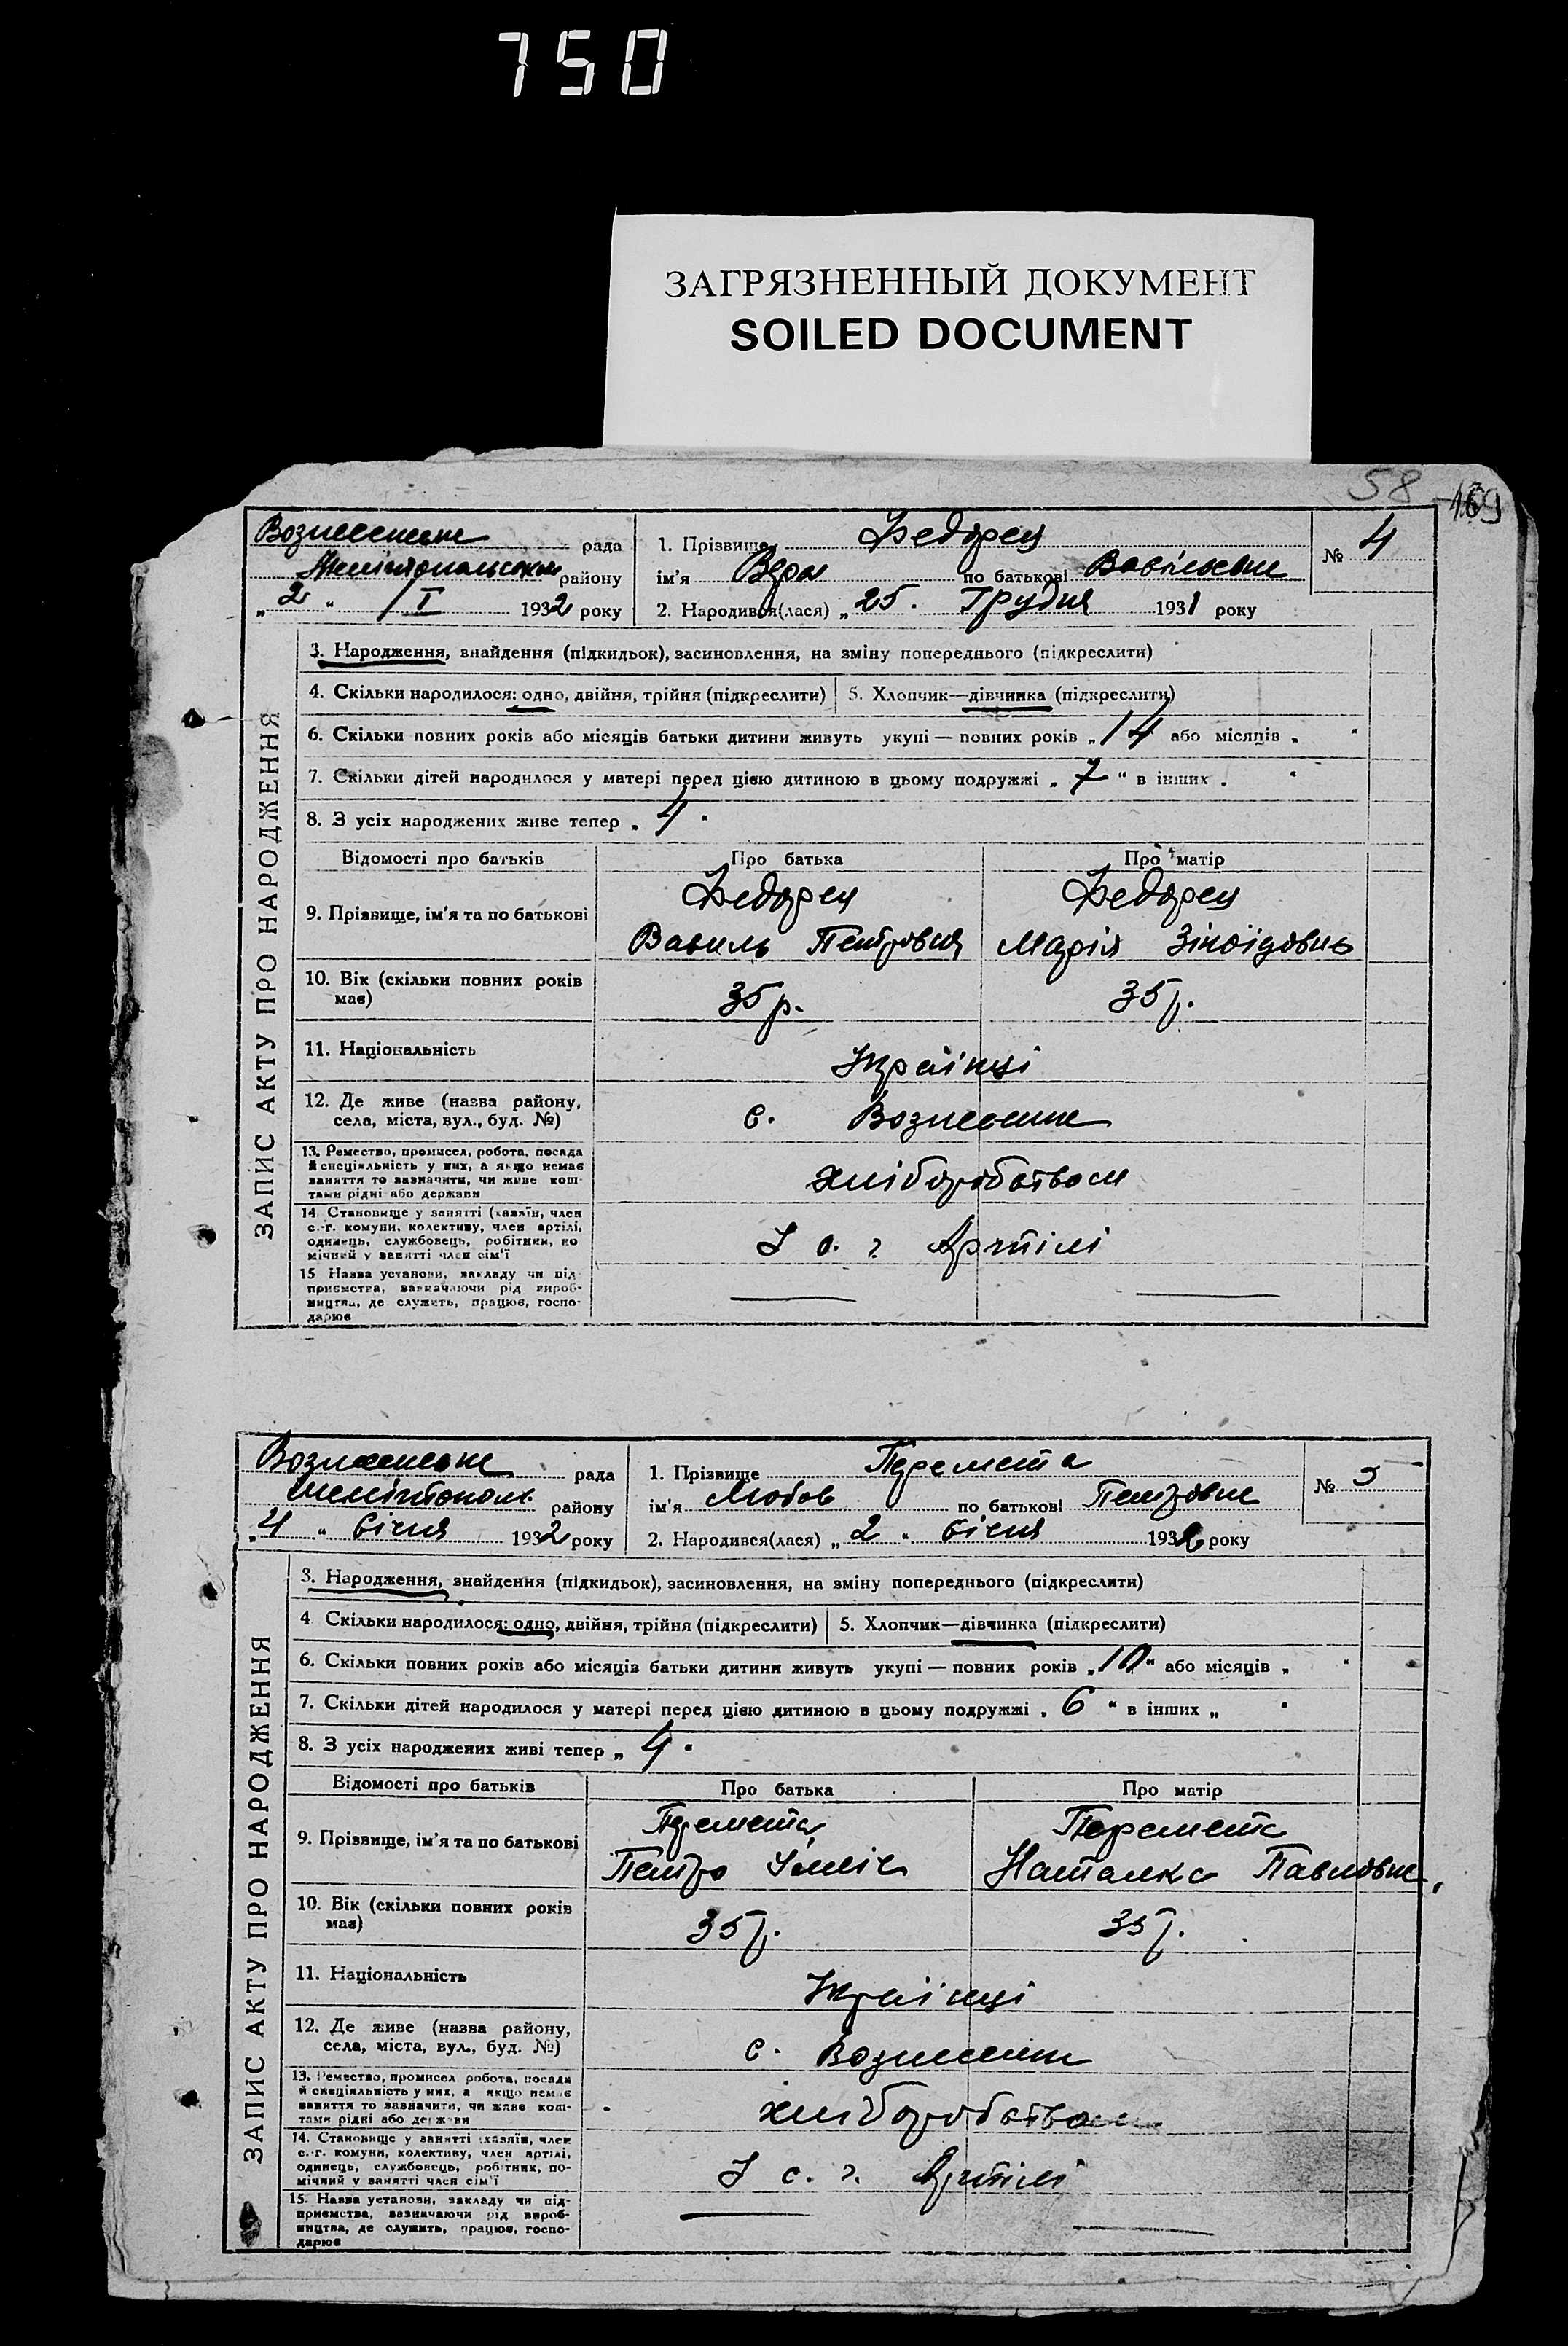 750
ЗАГРЯЗНЕННЫЙ ДОКУМЕНТ
SOILED DOCUMENT
58 169
Вознесенське рада
Мелітопольськ району
„2“ /I 1932 року
1. Прізвище Федорец
ім'я Вера по батькові Васильевне
2. Народився(лася) „25. Грудня 1931 року
№ 4
ЗАПИС АКТУ ПРО НАРОДЖЕННЯ
3. Народження, знайдення (підкидьок), засиновлення, на зміну попереднього (підкреслити)
4. Скільки народилося: одно, двійня, трійня (підкреслити) 5. Хлопчик—дівчинка (підкреслити)
6. Скільки повних років або місяців батьки дитини живуть укупі — повних років „14 або місяців „
7. Скільки дітей народилося у матері перед цією дитиною в цьому подружжі „7“ в інших „
8. З усіх народжених живе тепер „4"
Відомості про батьків Про батька Про матір
9. Прізвище, ім'я та по батькові
Федорец Федорец
Василь Петровия Марія Зіновідовна
10. Вік (скільки повних років має) 35 р. 35 р.
11. Національність Українці
12. Де живе (назва району, села, міста, вул., буд. №) с. Вознесенк
13. Ремество, промисел, робота, посада
й спеціяльність у них, а якщо немає
заняття то зазначити, чи живе кош-
тами рідні або держави
хліборобством
14. Становище у занятті (хазяїн, член
с.-г. комуни, колективу, член артілі,
одинець, службовець, робітник, по
мічний у занятті член сім'ї
У с. г Артілі
15 Назва установи, закладу чи під
приємства, зазначаючи рід вироб-
ництва, де служить, працює, госпо-
дарює
Вознесенське рада
Мелітопол. району
„4“ Січня 1932 року
1. Прізвище Перемета
ім'я Любов по батькові Петровне
2. Народився(лася) „2“ Січня 1932 року
№ 5
ЗАПИС АКТУ ПРО НАРОДЖЕННЯ
3. Народження, знайдення (підкидьок), засиновлення, на зміну попереднього (підкреслити)
4 Скільки народилося: одно, двійня, трійня (підкреслити) 5. Хлопчик—дівчинка (підкреслити)
6. Скільки повних років або місяців батьки дитини живуть укупі — повних років „10“ або місяців „
7. Скільки дітей народилося у матері перед цією дитиною в цьому подружжі „6“ в інших „
8. З усіх народжених живі тепер „4"
Відомості про батьків Про батька Про матір
9. Прізвище, ім'я та по батькові
Перемета Перемета
Петро Наталка Павловне
10. Вік (скільки повних років має) 35 р. 35 р.
11. Національність Українці
12. Де живе (назва району, села, міста, вул., буд. №) с. Вознесенк
13. Ремество, промисел, робота, посада
й спеціяльність у них, а якщо немає
заняття то зазначити, чи живе кош-
тами рідні або держави
хліборобством
14. Становище у занятті (хазяїн, член
с.-г. комуни, колективу, член артілі,
одинець, службовець, робітник, по-
мічний у занятті член сім'ї
У с. г. Артілі
15. Назва установи, закладу чи під-
приємства, зазначаючи рід вироб-
ництва, де служить, працює, госпо-
дарює